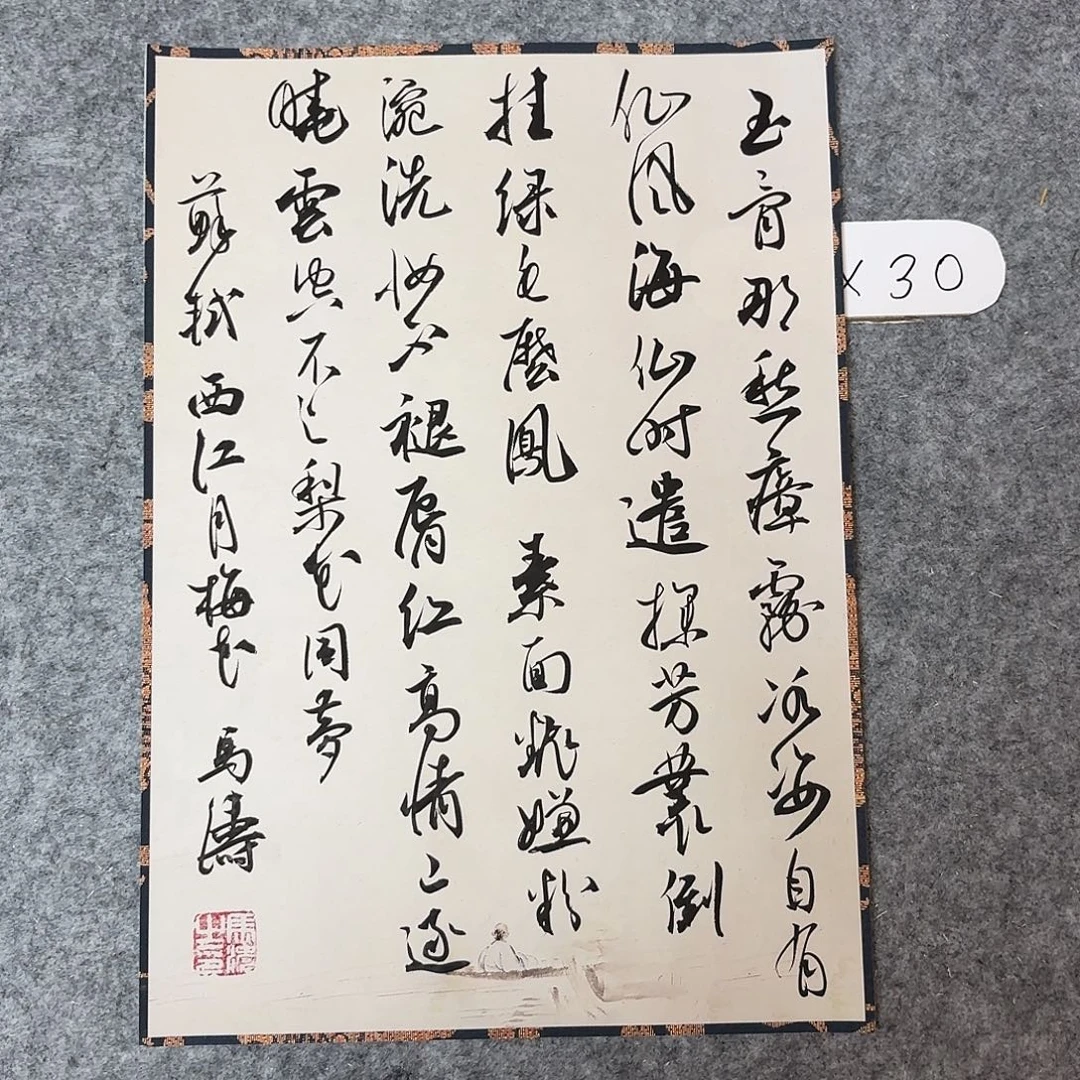 玉骨那愁瘴霧冰姿自有
仙风海仙时遣探芳叢倒
挂绿毛麼鳳 素面翻嫌粉
涴洗妝不褪唇红高情已逐
曉雲空不与梨花同夢
蘇軾西江月梅花 馬濤
x 30